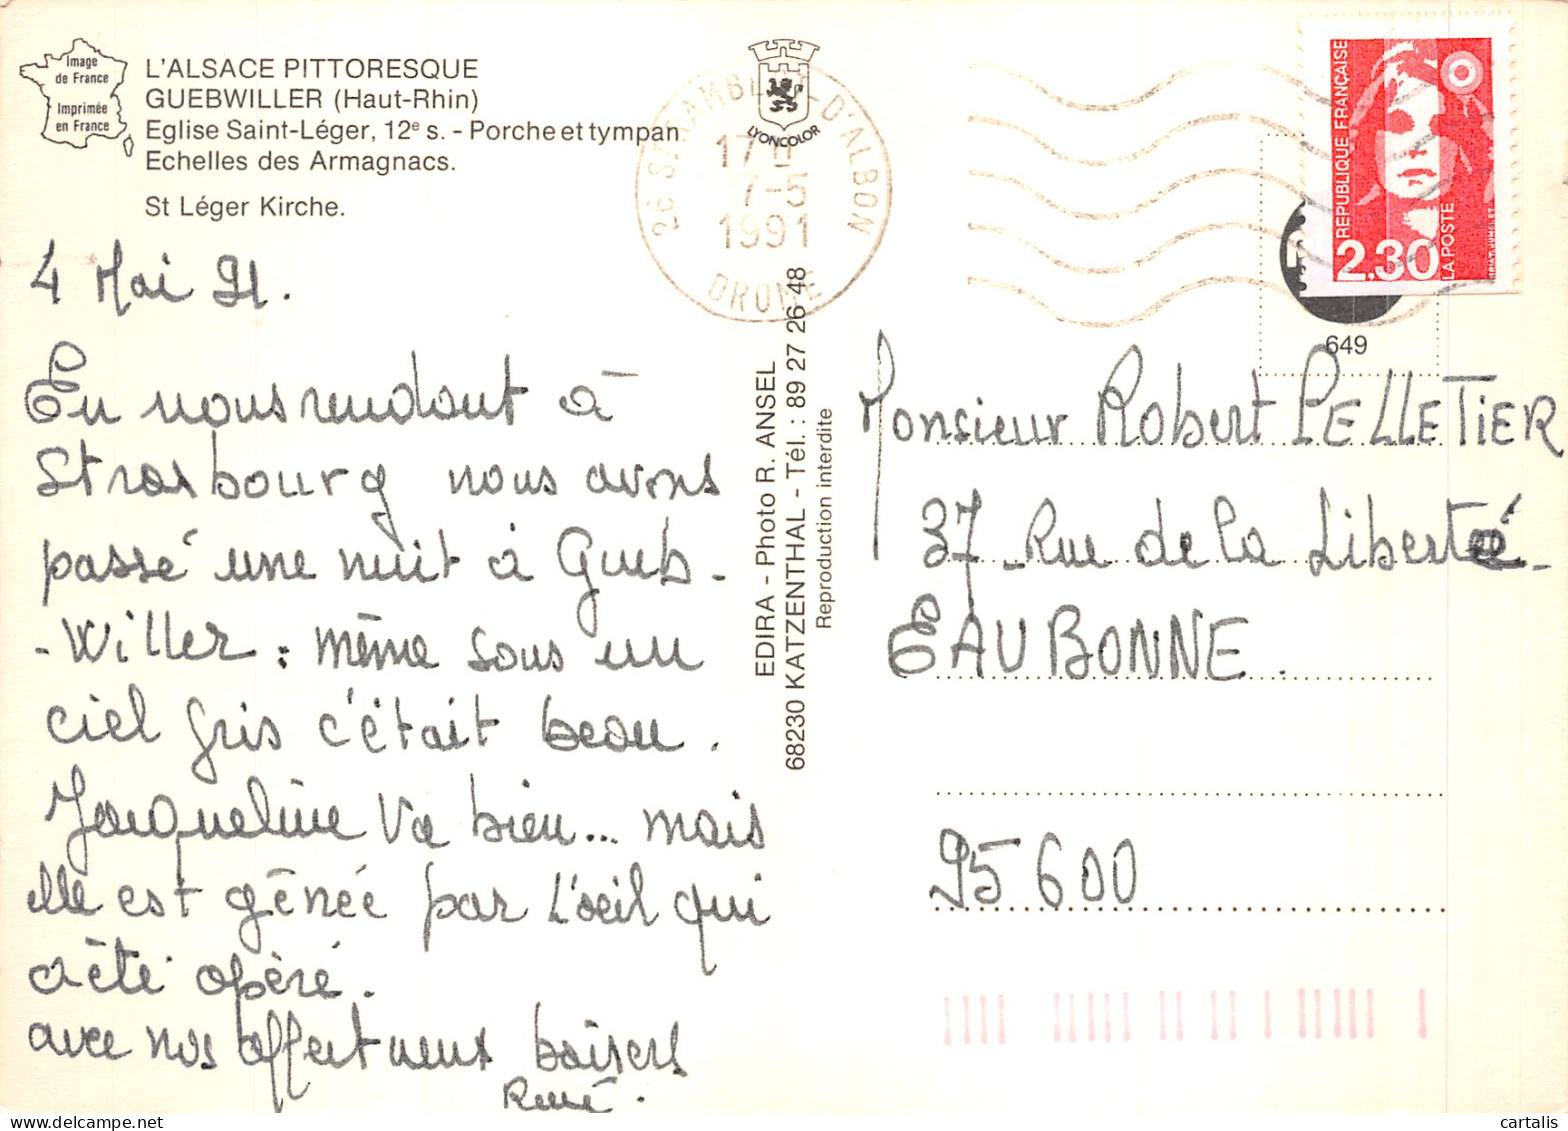 Image
de France
Imprimée
en France
L'ALSACE PITTORESQUE
GUEBWILLER (Haut-Rhin)
Eglise Saint-Léger, 12e s. - Porche et tympan
Echelles des Armagnacs.
St Léger Kirche.
4 Mai 91.
En nous rendant à
Strasbourg nous avons
passé une nuit à Gueb-
-Willer : même sous un
ciel gris c'était beau.
Jacqueline va bien... mais
elle est gênée par l'oeil qui
a été opéré.
avec nos affectueux baisers
René.
LYONCOLOR
26 S RAMBERT-D'ALBON
17 H
7-5
1991
DROME
EDIRA - Photo R. ANSEL
68230 KATZENTHAL - Tél. : 89 27 26 48
Reproduction interdite
REPUBLIQUE FRANÇAISE
2,30
LA POSTE
BRIAT-JUMELET
649
Monsieur Robert PELLETIER
37 - Rue de la Liberté -
EAUBONNE.
95600
© cartalis